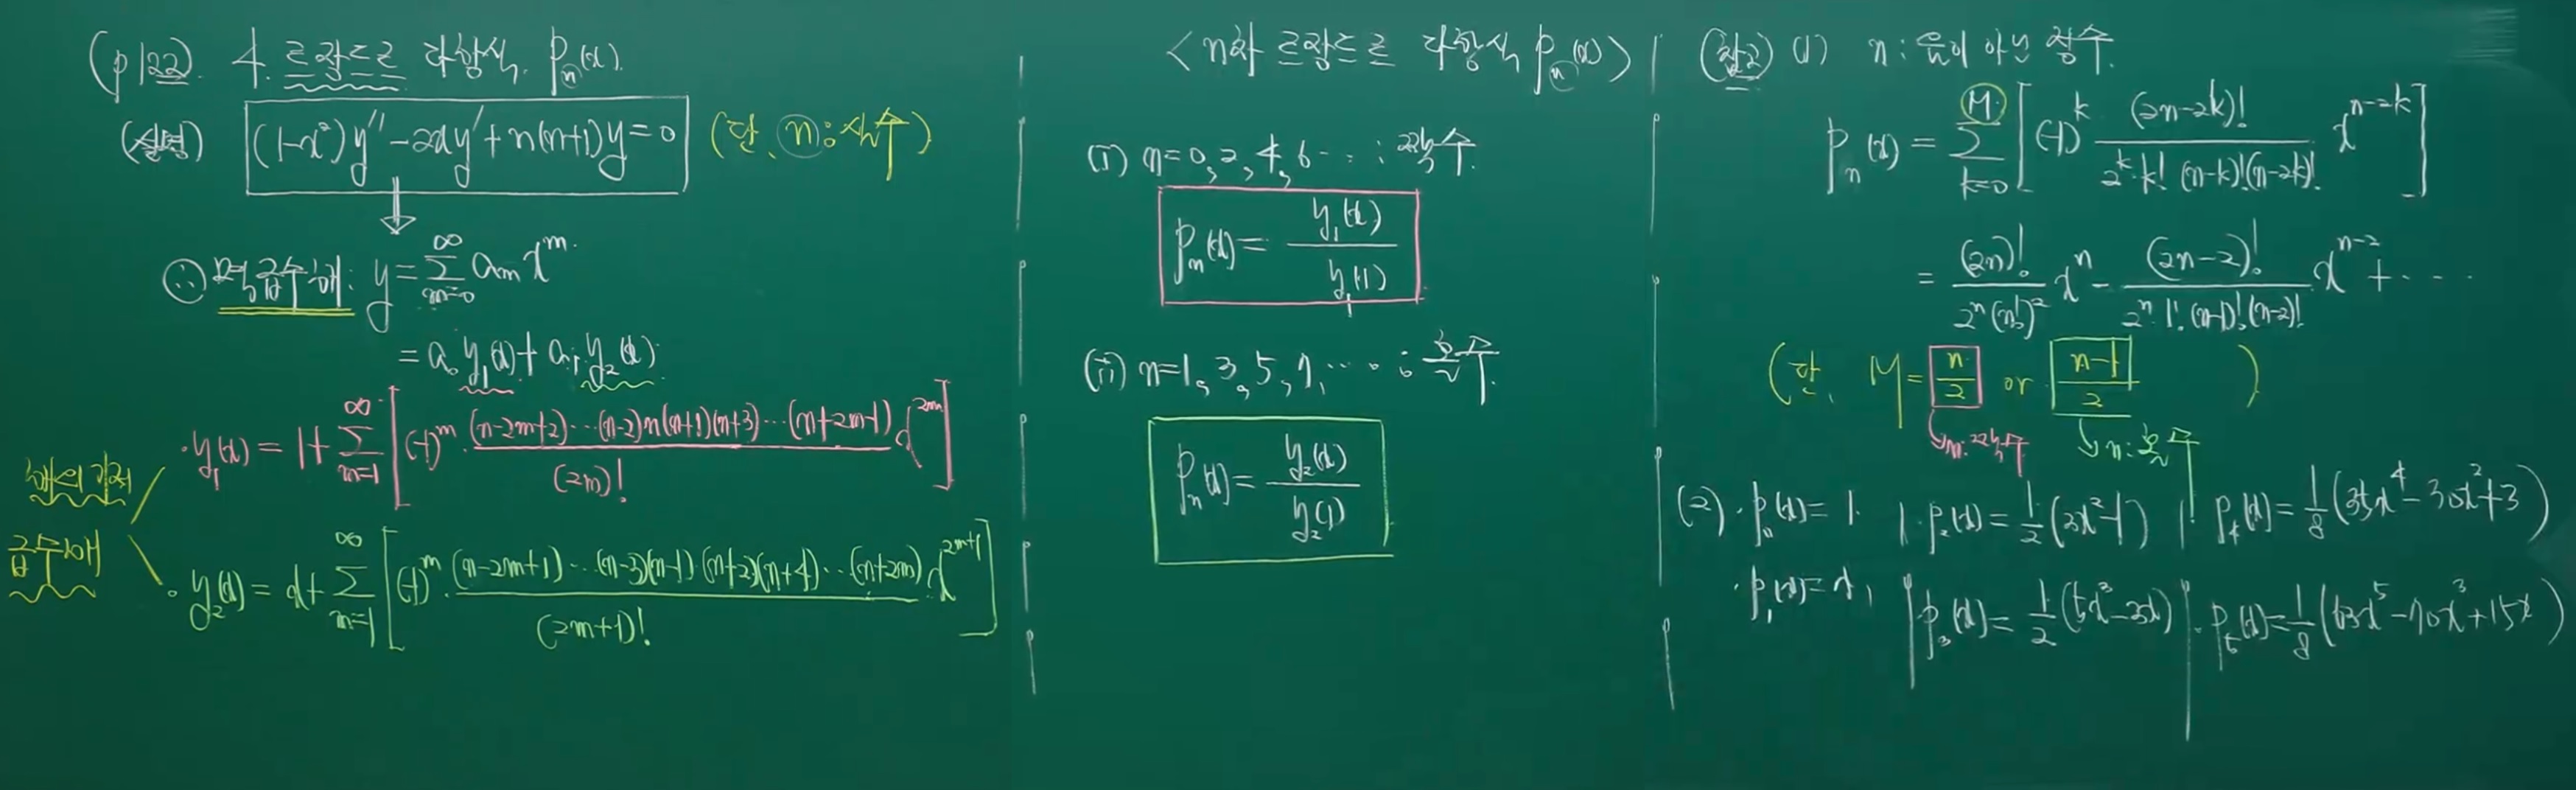 (p122). 4. 르장드르 다항식. Pₙ(x).
(설명) (1-x²)y″-2xy′+n(n+1)y=0 (단, n:상수)
∴ 멱급수해: y=∑_{m=0}^{∞} aₘxᵐ.
=a₀y₁(x)+a₁y₂(x).
해의 기저
급수해
· y₁(x)=1+∑_{m=1}^{∞}[(-1)ᵐ·(n-2m+2)···(n-2)n(n+1)(n+3)···(n+2m-1)/(2m)! x^{2m}]
· y₂(x)=x+∑_{m=1}^{∞}[(-1)ᵐ·(n-2m+1)···(n-3)(n-1)(n+2)(n+4)···(n+2m)/(2m+1)! x^{2m+1}]
<n차 르장드르 다항식 Pₙ(x)>
(i) n=0, 2, 4, 6 ··· : 짝수.
Pₙ(x)=y₁(x)/y₁(1)
(ii) n=1, 3, 5, 7, ··· : 홀수.
Pₙ(x)=y₂(x)/y₂(1)
(참고) (1) n: 음이 아닌 정수.
Pₙ(x)=∑_{k=0}^{M}[(-1)ᵏ (2n-2k)!/(2ⁿ·k!(n-k)!(n-2k)!) x^{n-2k}]
=(2n)!/(2ⁿ(n!)²) xⁿ-(2n-2)!/(2ⁿ·1!·(n-1)!(n-2)!) x^{n-2}+····
(단, M=n/2 or (n-1)/2)
n:짝수 n:홀수
(2) · P₀(x)=1. | · P₂(x)=1/2(3x²-1) | · P₄(x)=1/8(35x⁴-30x²+3)
· P₁(x)=x, | · P₃(x)=1/2(5x³-3x) | · P₅(x)=1/8(63x⁵-70x³+15x)